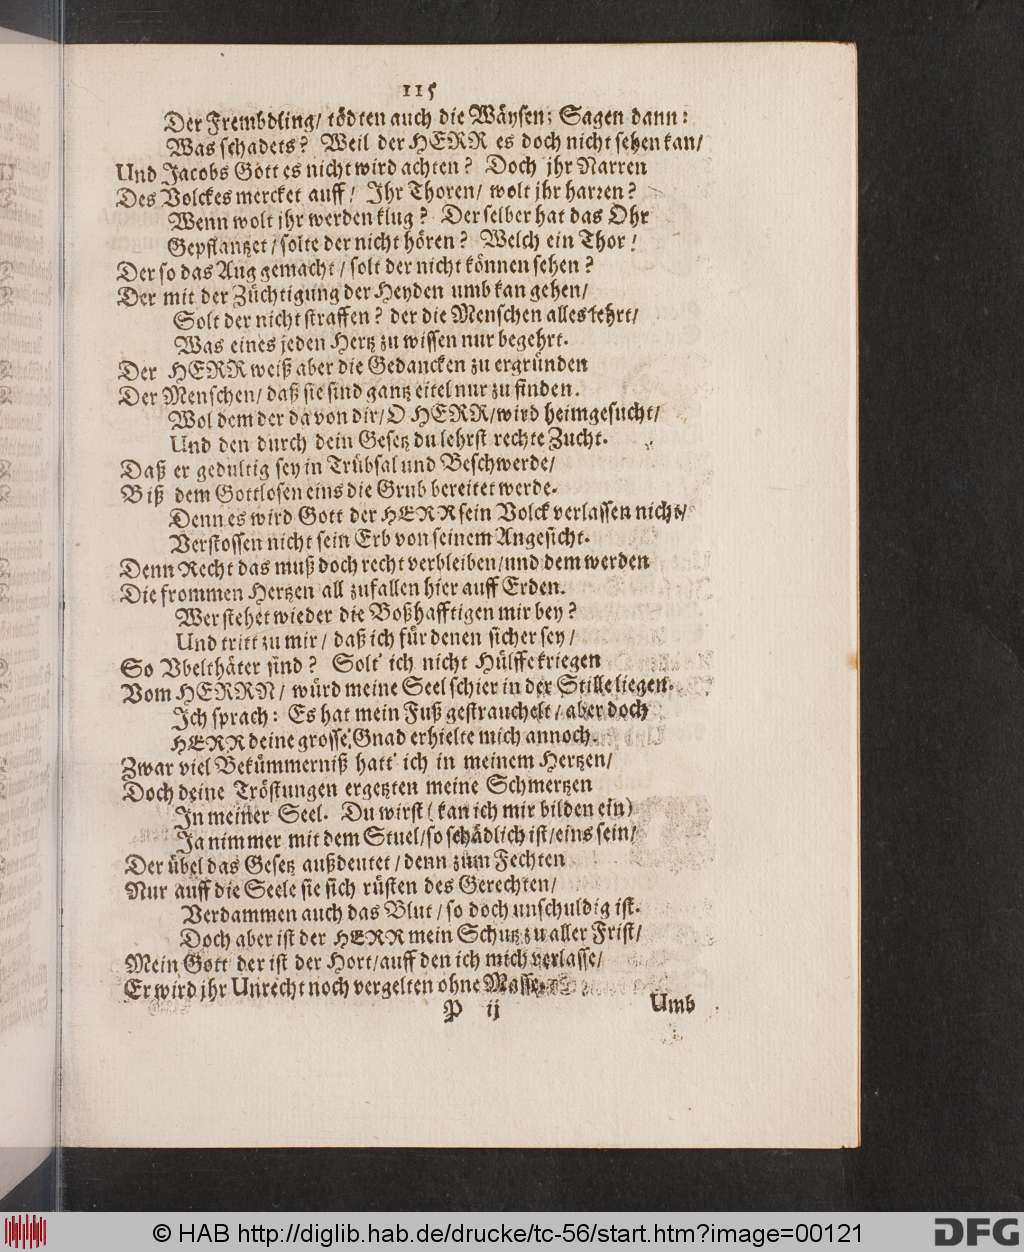 115
Der Frembdling/ tödten auch die Wäysen; Sagen dann:
Was schadets? Weil der HERR es doch nicht sehen kan/
Und Jacobs Gott es nicht wird achten? Doch jhr Narren
Des Volckes mercket auff! Ihr Thoren/ wolt jhr harren?
Wenn wolt jhr werden klug? Der selber hat das Ohr
Gepflantzet/ solte der nicht hören? Welch ein Thor!
Der so das Aug gemacht/ solt der nicht können sehen?
Der mit der Züchtigung der Heyden umb kan gehen/
Solt der nicht straffen? der die Menschen alles lehrt/
Was eines jeden Hertz zu wissen nur begehrt.
Der HERR weiß aber die Gedancken zu ergründen
Der Menschen/ daß sie sind gantz eitel nur zu finden.
Wol dem der da von dir/ O HERR/ wird heimgesucht/
Und den durch dein Gesetz du lehrst rechte Zucht.
Daß er gedultig sey in Trübsal und Beschwerde/
Biß dem Gottlosen eins die Grub bereitet werde.
Denn es wird Gott der HERR sein Volck verlassen nicht/
Verstossen nicht sein Erb von seinem Angesicht.
Denn Recht das muß doch recht verbleiben/ und dem werden
Die frommen Hertzen all zufallen hier auff Erden.
Wer stehet wieder die Boßhafftigen mir bey?
Und tritt zu mir/ daß ich für denen sicher sey/
So Vbelthäter sind? Solt' ich nicht Hülffe kriegen
Vom HERRN/ würd meine Seel schier in der Stille liegen.
Ich sprach: Es hat mein Fuß gestrauchelt/ aber doch
HERR deine grosse Gnad erhielte mich annoch.
Zwar viel Bekümmerniß hatt' ich in meinem Hertzen/
Doch deine Tröstungen ergetzten meine Schmertzen
In meiner Seel. Du wirst (kan ich mir bilden ein)
Ja nimmer mit dem Stuel/ so schädlich ist/ eins sein/
Der übel das Gesetz außdeutet/ denn zum Fechten
Nur auff die Seele sie sich rüsten des Gerechten/
Verdammen auch das Blut/ so doch unschuldig ist.
Doch aber ist der HERR mein Schutz zu aller Frist/
Mein Gott der ist der Hort/ auff den ich mich verlasse/
Er wird jhr Unrecht noch vergelten ohne Masse.
P ij Umb
© HAB http://diglib.hab.de/drucke/tc-56/start.htm?image=00121
DFG